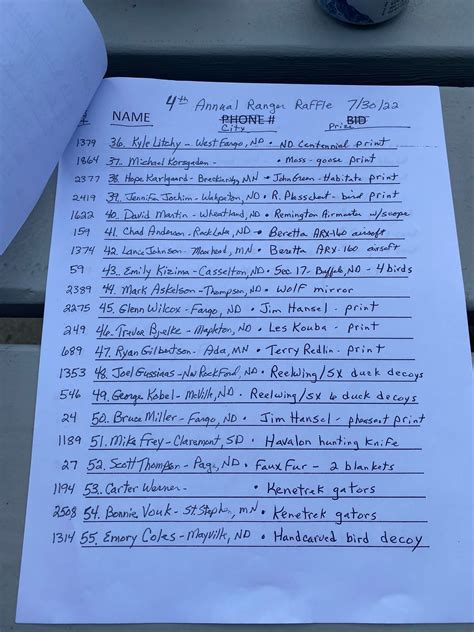 4th Annual Ranger Raffle 7/30/22
# NAME PHONE # BID
City Prize
1379 36. Kyle Litchy - West Fargo, ND • ND Centennial print
1864 37. Michael Korsgaden - • Moss - goose print
2377 38. Hope Karlgaard - MN • John Green - Habitate print
2419 39. Jennifer Jochim - Wahpeton, ND • R. Plasschaert - bird print
1622 40. David Martin - Wheatland, ND • Remington Airmaster w/scope
159 41. Chad Anderson - Rock Lake, ND • Beretta ARX-160 airsoft
1374 42. Lance Johnson - Moorhead, MN • Beretta ARX-160 airsoft
59 43. Emily Kizima - Casselton, ND • Sec 17 - Buffalo, ND - 4 birds
2389 44. Mark Askelson - Thompson, ND • Wolf mirror
2275 45. Glenn Wilcox - Fargo, ND • Jim Hansel - print
249 46. Trevor Bjelke - Mapleton, ND • Les Kouba - print
689 47. Ryan Gilbertson - Ada, MN • Terry Redlin - print
1353 48. Joel Gussiaas - New Rockford, ND • Reelwing/5x duck decoys
546 49. George Kobel - McVille, ND • Reelwing/5x 6 duck decoys
24 50. Bruce Miller - Fargo, ND • Jim Hansel - pheasant print
1189 51. Mike Frey - Claremont, SD • Havalon hunting Knife
27 52. Scott Thompson - Page, ND • Faux Fur - 2 blankets
1194 53. Carter Werner - • Kenetrek gators
2508 54. Bonnie Vouk - St Stephen, MN • Kenetrek gators
1314 55. Emory Coles - Mayville, ND • Handcarved bird decoy